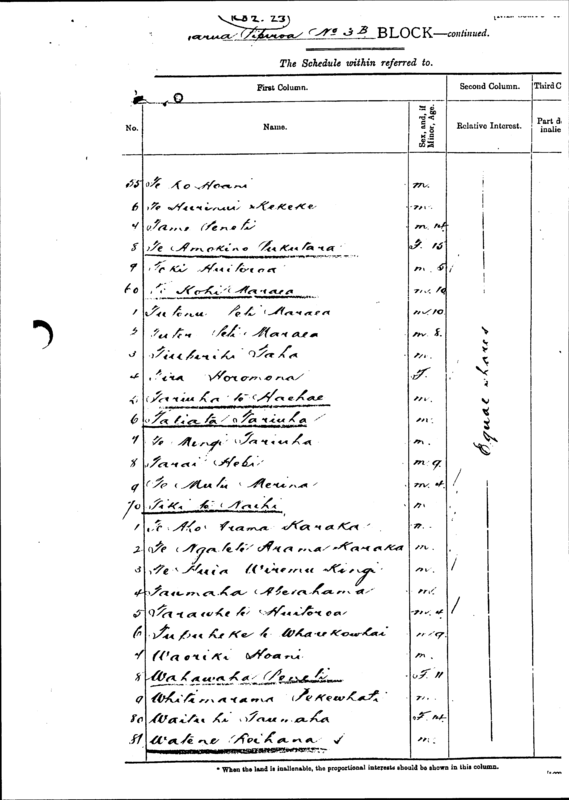 (KB2. 23)
No 3B BLOCK—continued.
The Schedule within referred to.
First Column. Second Column. Third C
No. Name. Sex, and, if Minor, Age. Relative Interest. Part d inalie
55 Te Ko Hoani m.
6 Te Hurinui Kekeke m.
Tame Peneti m.
8 Te Amokino Tukutara F. 15
9 Toki Huitoroa m. 5
60 Te Kohi Maraea m. 10
1 Tutonu Pehi Maraea m 10
Pehi Maraea m. 8.
3 Taha m.
4 Tira Horomona F.
Tariuha te Haehae m.
6 Taliata Tariuha m.
7 Te Mengi Tariuha m.
8 Tarai Hebi m 9.
9 Te Mulu Merina m. 4.
70 Tiki te Naihi
1 Te Aho Arama Karaka
2 Te Ngaleti Arama Karaka m.
3 Te Puia Wiremu Kingi m.
4 Taumaha Aperahama
5 Tarawheti Huitoroa m. 4
6 Tupuheke te Wharekowhai
7 Waoriki Hoani m.
8 Wahawaha Peneti F. 11
9 Whitimarama Pekewhati
80 Waituhi Taumaha F.
81 Watene Reihana m.
Equal shares
* When the land is inalienable, the proportional interests should be shown in this column.